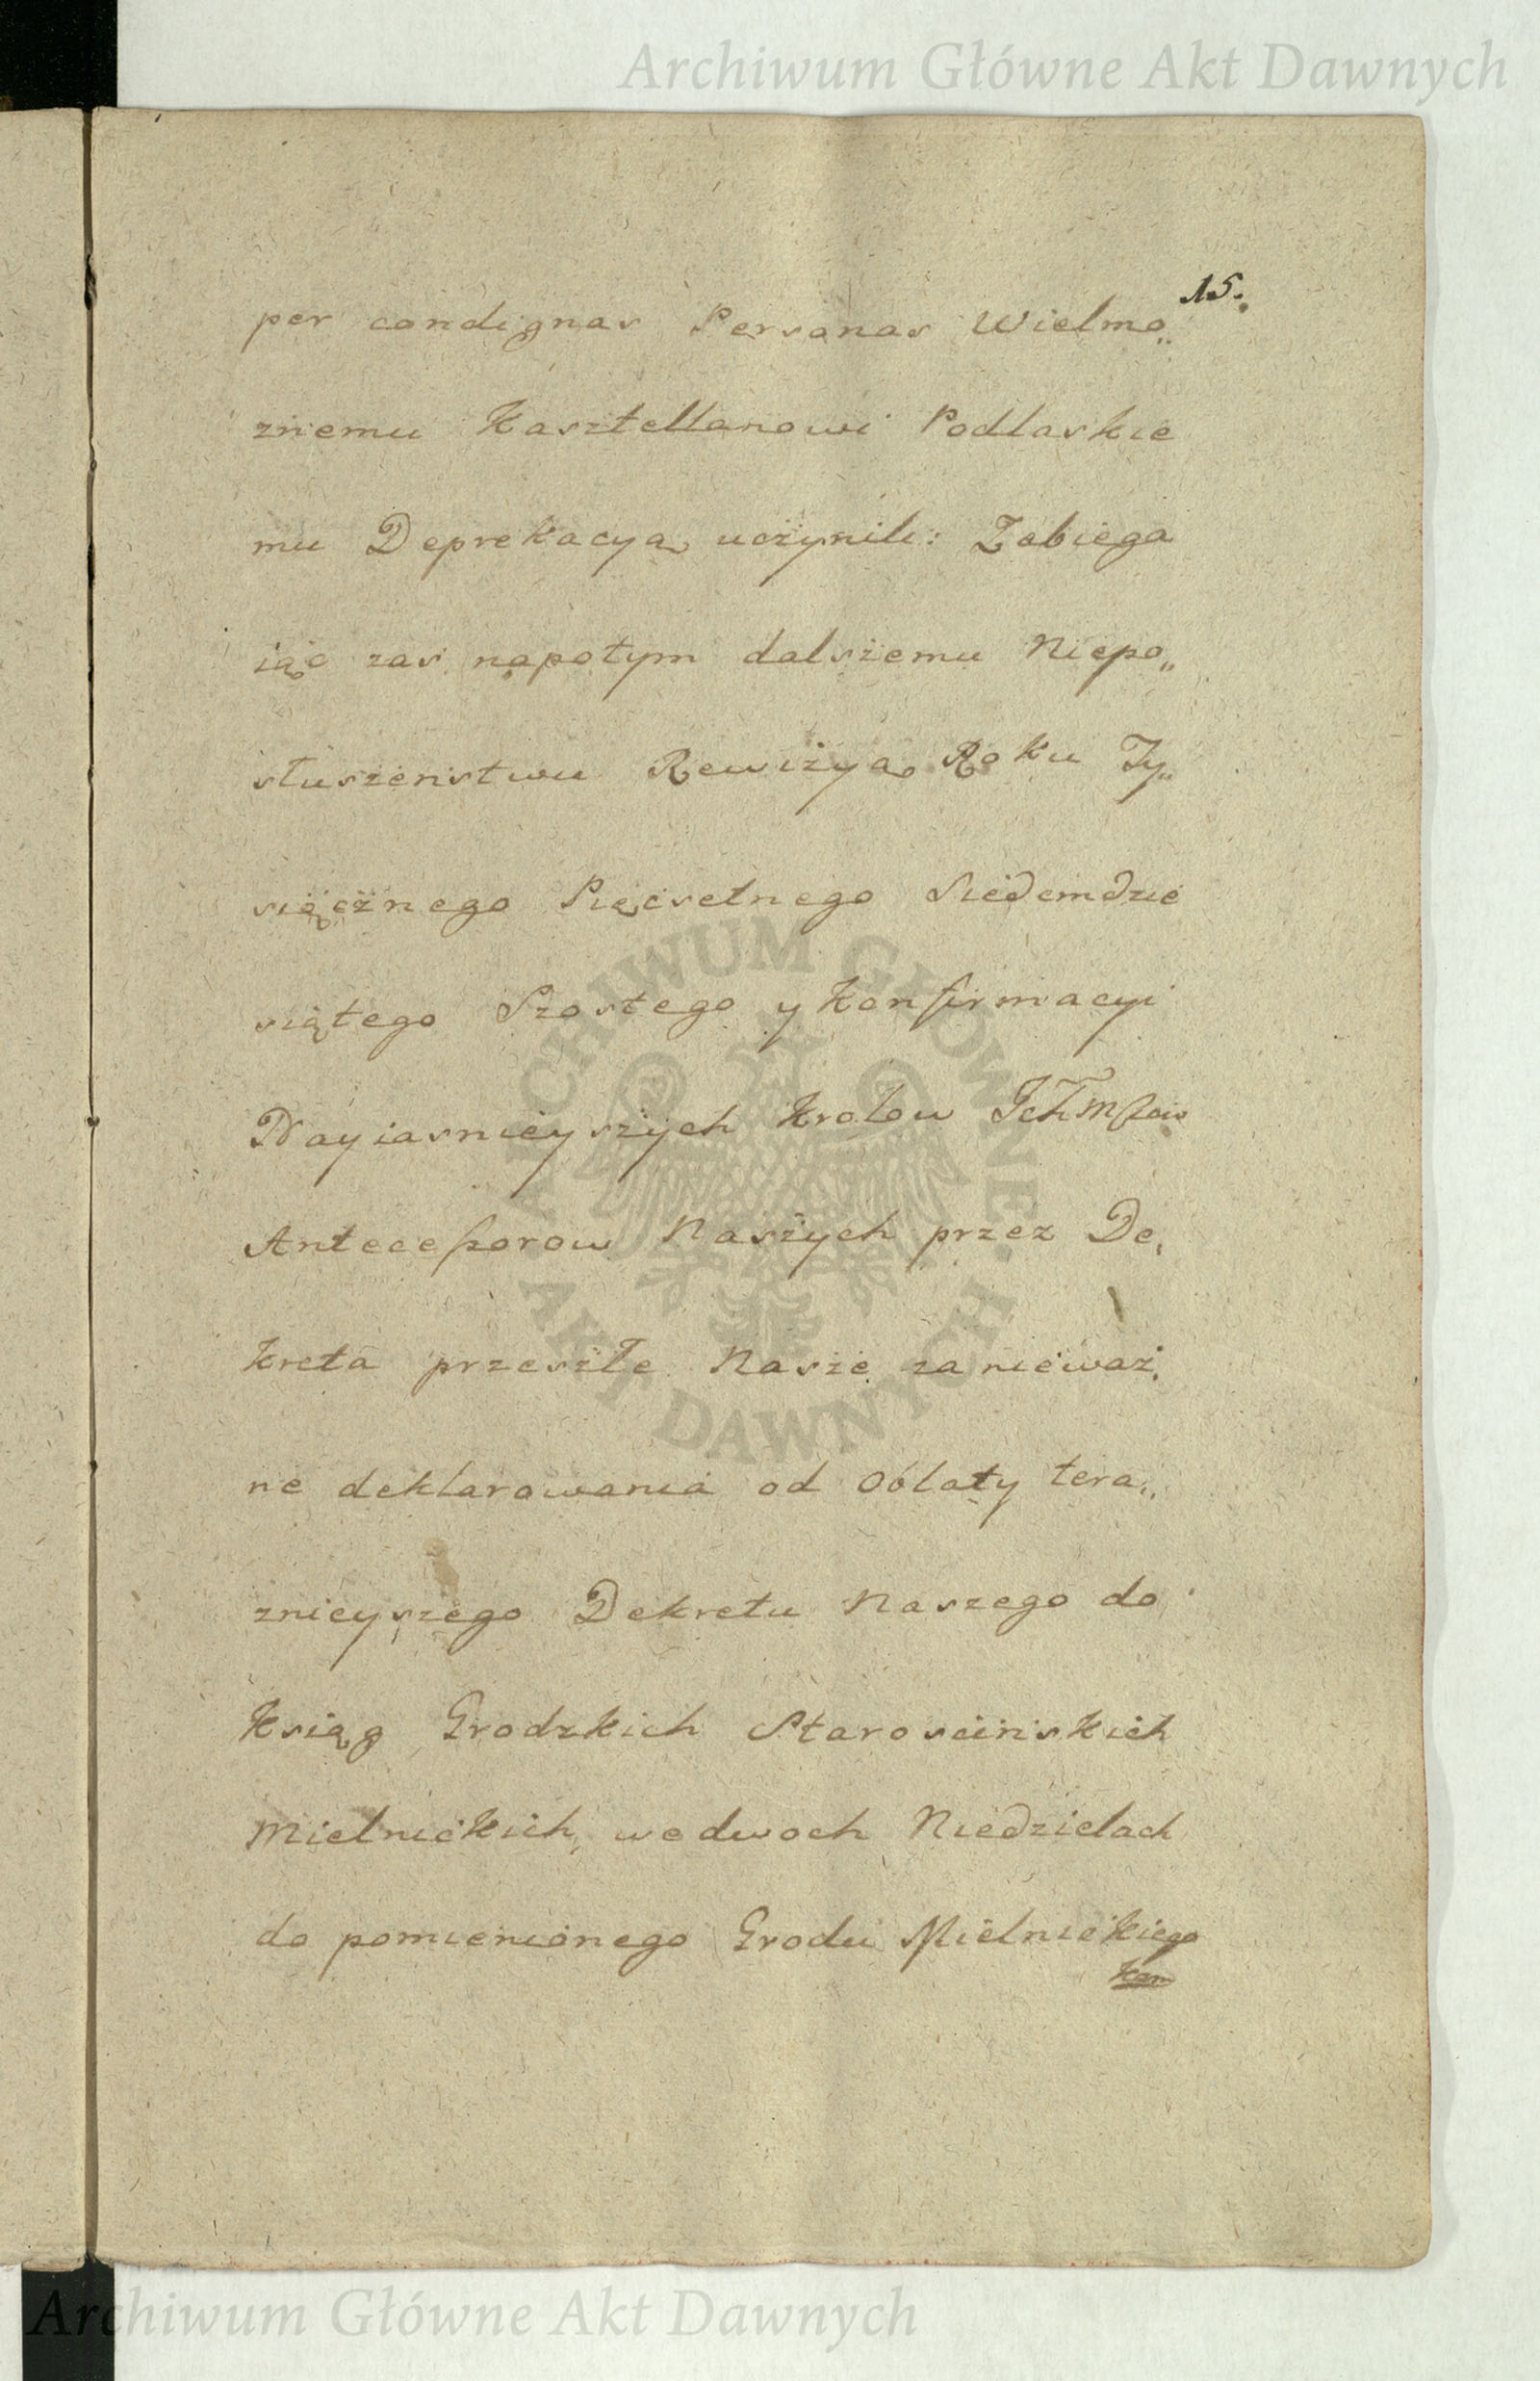 Archiwum Główne Akt Dawnych
15.
per condignas Personas Wielmo„
znemu Kasztellanowi Podlaskie
mu Deprekacyą uczynili: Zabiega
iąc zas napotym dalszemu Niepo„
słuszenstwu Rewizyą Roku Ty„
siącznego Pięcsetnego Siedemdzie
siątego Szostego y Konfirmacyi
Nayiasnieyszych Krolow
Antecessorow Naszych przez De„
kreta przeszłe Nasze za nieważ„
ne deklarowania od Oblaty tera„
znieyszego Dekretu Naszego do
Ksiąg Grodzkich Starościnskich
Mielnickich, we dwoch Niedzielach
do pomienionego Grodu Mielnickiego
ARCHIWUM GŁÓWNE AKT DAWNYCH
Archiwum Główne Akt Dawnych